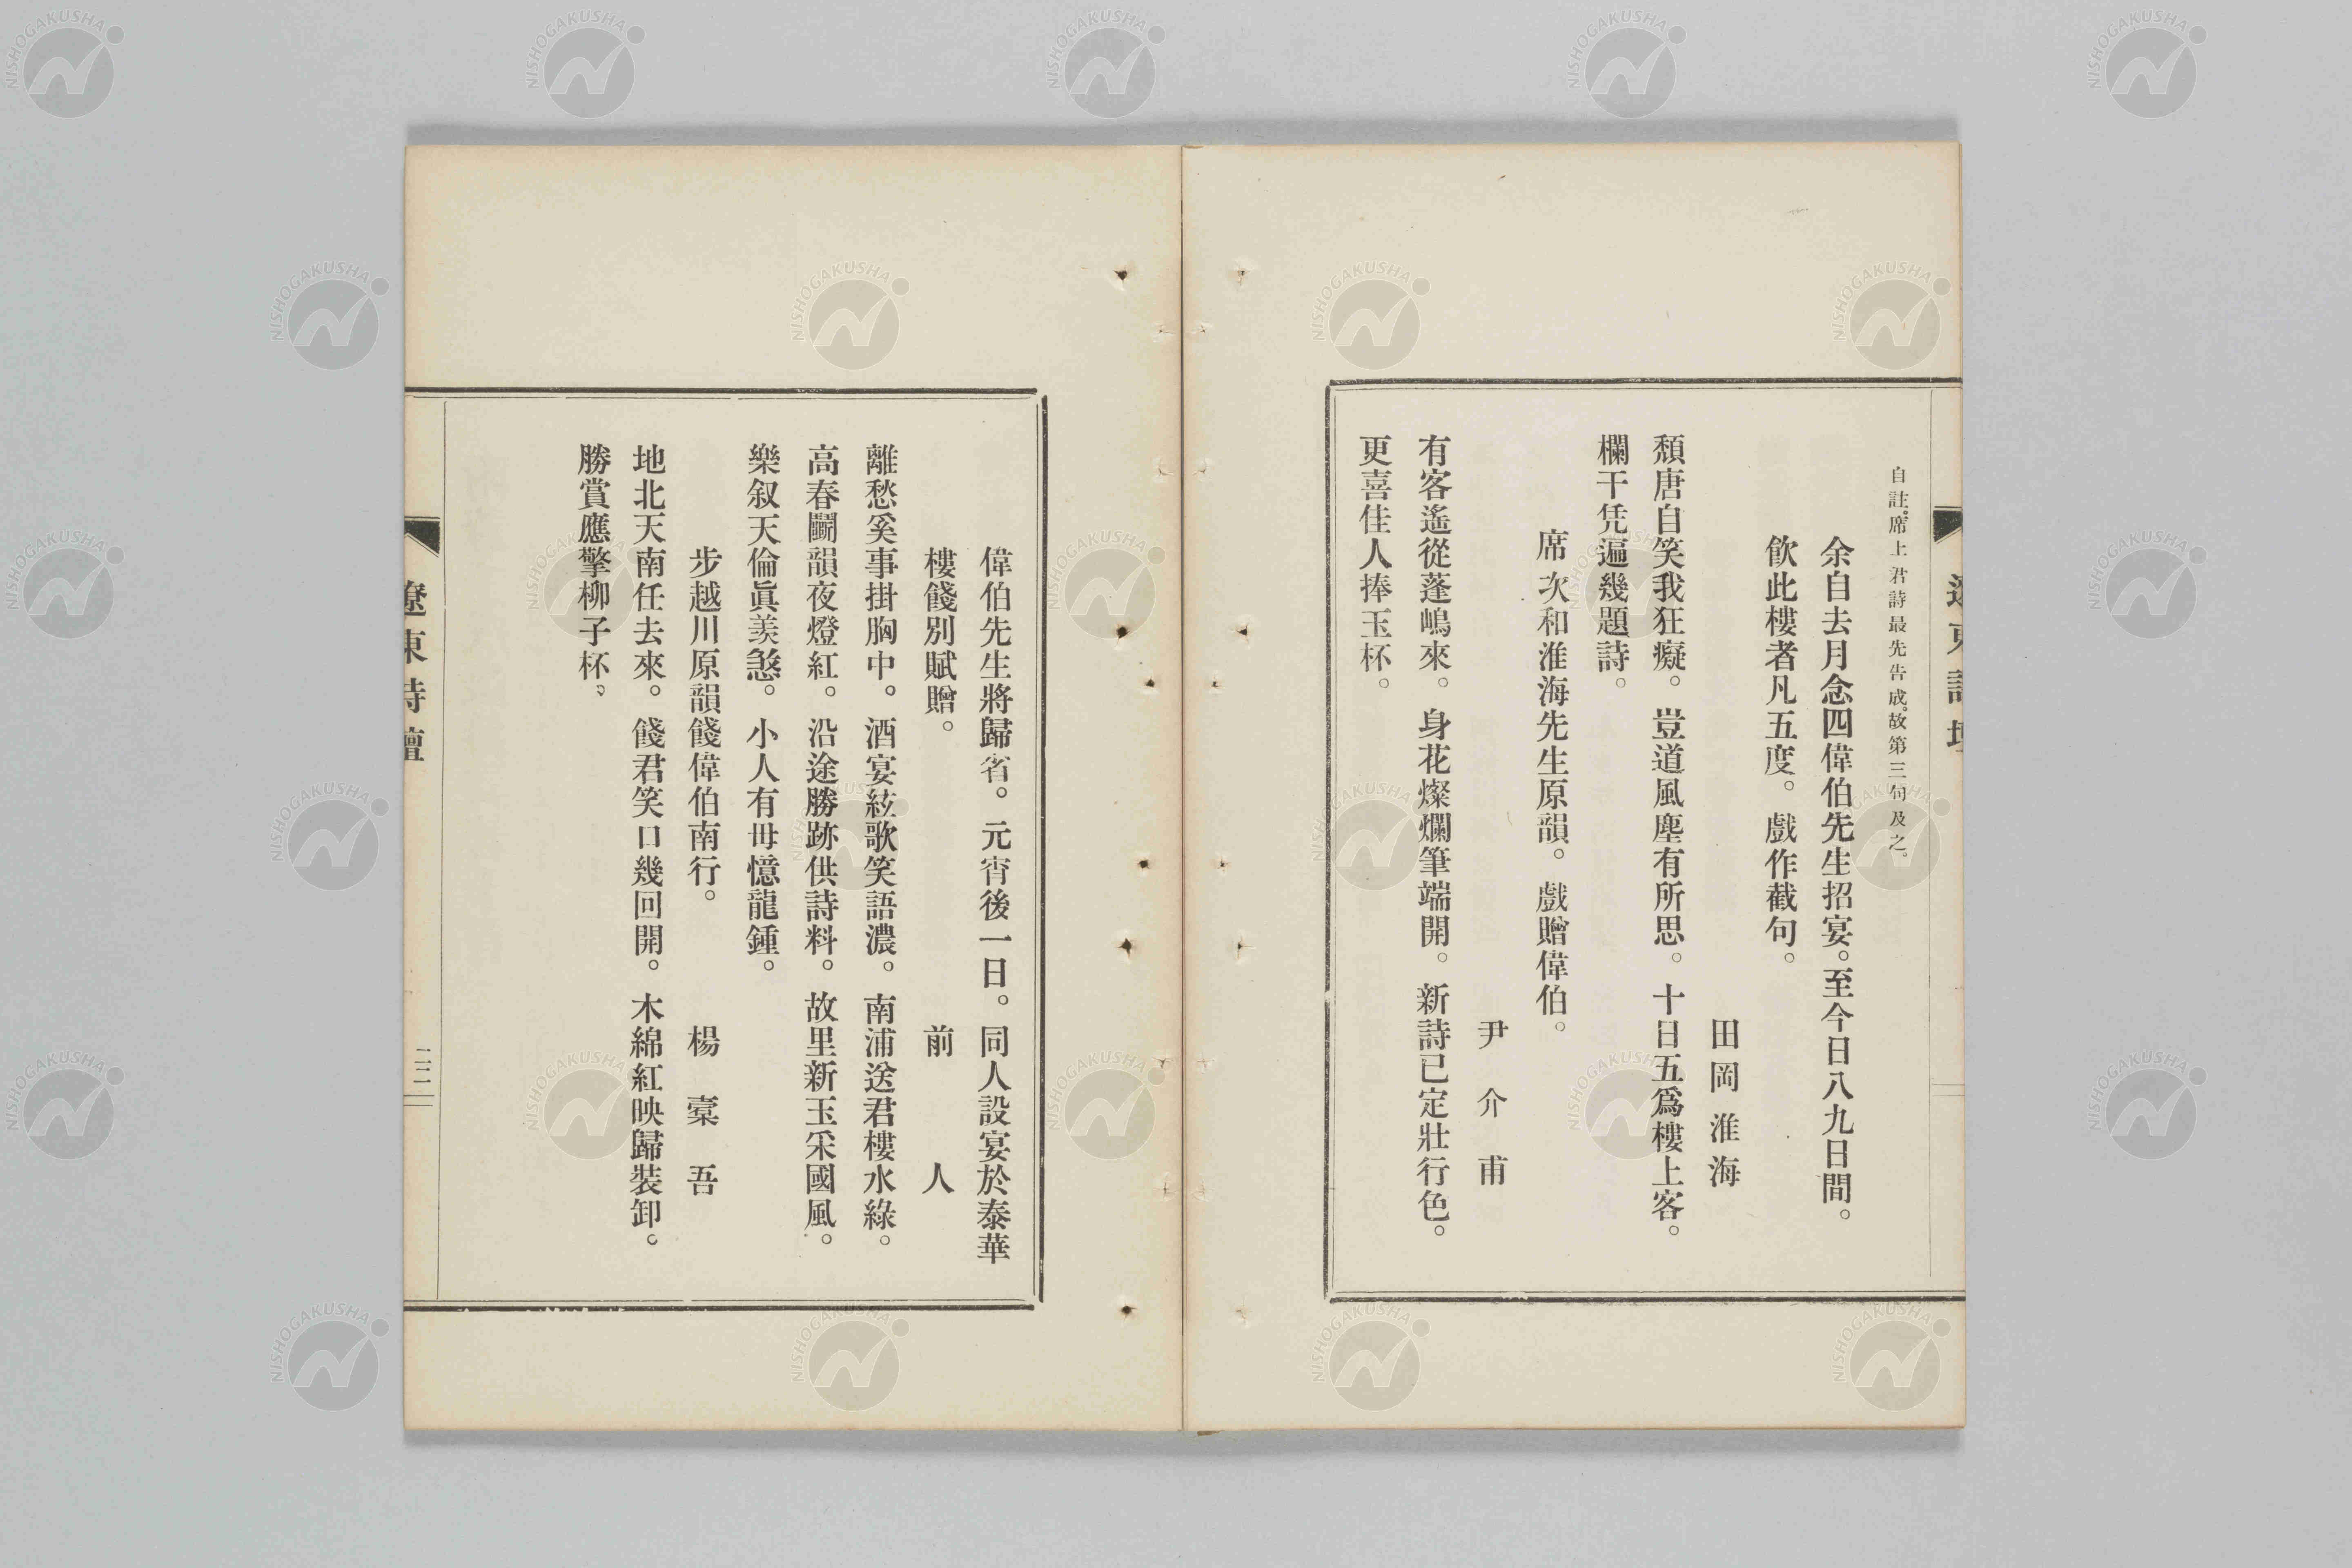 自註。席上君詩最先告成。故第三句及之。
余自去月念四偉伯先生招宴。至今日八九日間。
飮此樓者凡五度。戲作截句。
田岡淮海
頹唐自笑我狂癡。豈道風塵有所思。十日五爲樓上客。
欄干凭遍幾題詩。
席次和淮海先生原韻。戲贈偉伯。
尹介甫
有客遙從蓬嶋來。身花燦爛筆端開。新詩已定壯行色。
更喜佳人捧玉杯。
偉伯先生將歸省。元宵後一日。同人設宴於泰華
樓餞別賦贈。
前人
離愁奚事掛胸中。酒宴絃歌笑語濃。南浦送君樓水綠。
高春鬭韻夜燈紅。沿途勝跡供詩料。故里新玉采國風。
樂叙天倫眞羨煞。小人有毋憶龍鍾。
步越川原韻餞偉伯南行。
楊槖吾
地北天南任去來。餞君笑口幾回開。木綿紅映歸裝卸。
勝賞應擎柳子杯。
遼東詩壇
二二
NISHOGAKUSHA